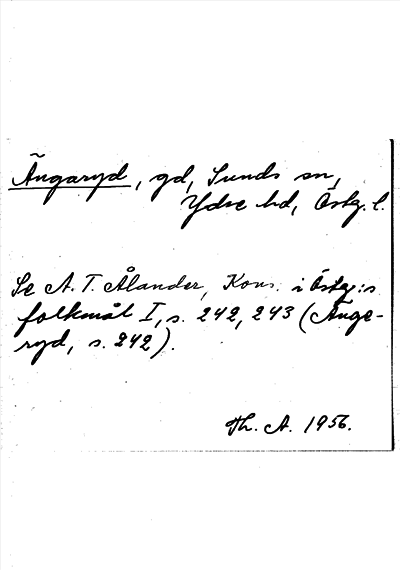 Ängaryd, gd, Sunds sn,
Ydre hd, Östg. l.
Se A. T. Ålander, Kons. i Östg:s
folkmål I, s. 242, 243 (Änge-
ryd, s. 242).
Th. A. 1956.